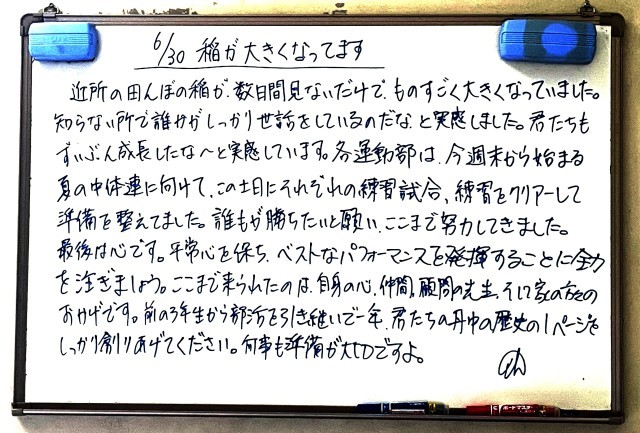 6/30 稲が大きくなってます
近所の田んぼの稲が、数日間見ないだけで、ものすごく大きくなっていました。
知らない所で誰かがしっかり世話をしているのだな、と実感しました。君たちも
ずいぶん成長したな〜と実感しています。各運動部は、今週末から始まる
夏の中体連に向けて、この土日にそれぞれの練習試合、練習をクリアーして
準備を整えてました。誰もが勝ちたいと願い、ここまで努力してきました。
最後は心です。平常心を保ち、ベストなパフォーマンスを発揮することに全力
を注ぎましょう。ここまで来られたのは、自身の心、仲間、顧問の先生、そして家の方々の
おかげです。前の3年生から部活を引き継いで一年、君たちの丹中の歴史の1ページを
しっかり創りあげてください。何事も準備が大切ですよ。
ボードマスター